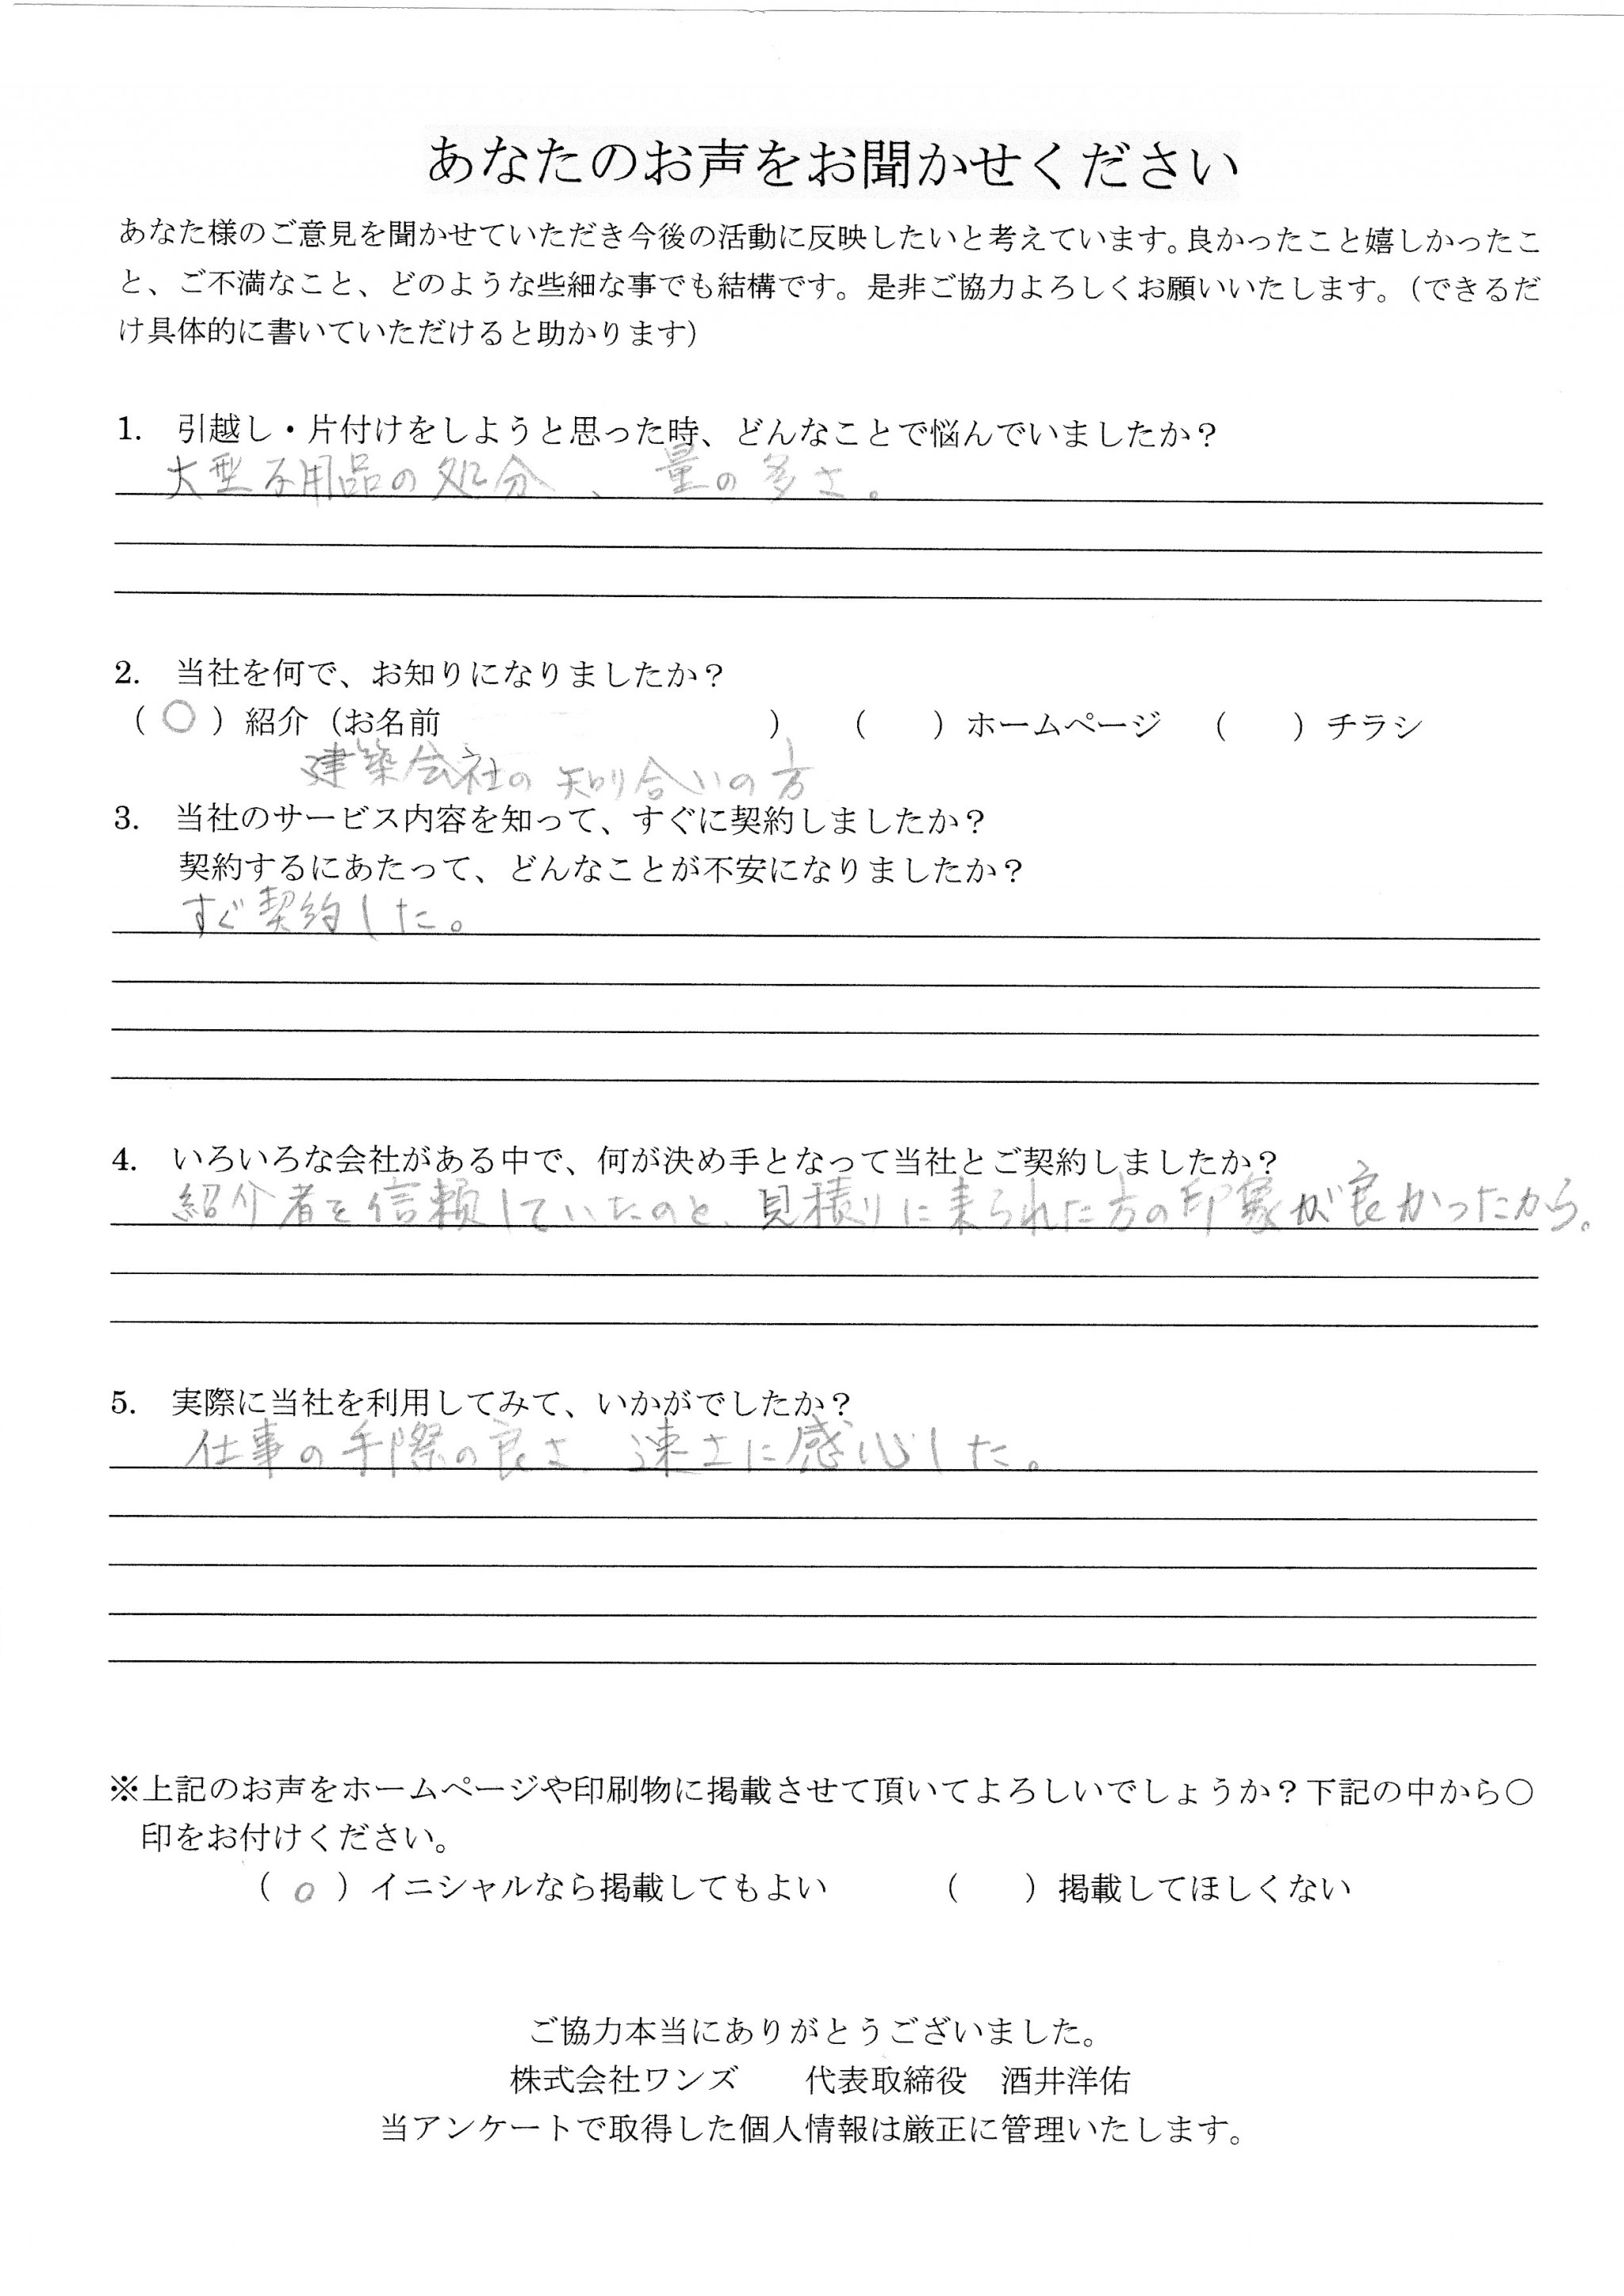 あなたのお声をお聞かせください
あなた様のご意見を聞かせていただき今後の活動に反映したいと考えています。良かったこと嬉しかったこ
と、ご不満なこと、どのような些細な事でも結構です。是非ご協力よろしくお願いいたします。（できるだ
け具体的に書いていただけると助かります）
1. 引越し・片付けをしようと思った時、どんなことで悩んでいましたか？
大型不用品の処分、量の多さ。
2. 当社を何で、お知りになりましたか？
（ ○ ）紹介（お名前 ） （ ）ホームページ （ ）チラシ
建築会社の知り合いの方
3. 当社のサービス内容を知って、すぐに契約しましたか？
契約するにあたって、どんなことが不安になりましたか？
すぐ契約した。
4. いろいろな会社がある中で、何が決め手となって当社とご契約しましたか？
紹介者を信頼していたのと、見積りに来られた方の印象が良かったから。
5. 実際に当社を利用してみて、いかがでしたか？
仕事の手際の良さ、速さに感心した。
※上記のお声をホームページや印刷物に掲載させて頂いてよろしいでしょうか？下記の中から○
印をお付けください。
（ ○ ）イニシャルなら掲載してもよい （ ）掲載してほしくない
ご協力本当にありがとうございました。
株式会社ワンズ 代表取締役 酒井洋佑
当アンケートで取得した個人情報は厳正に管理いたします。